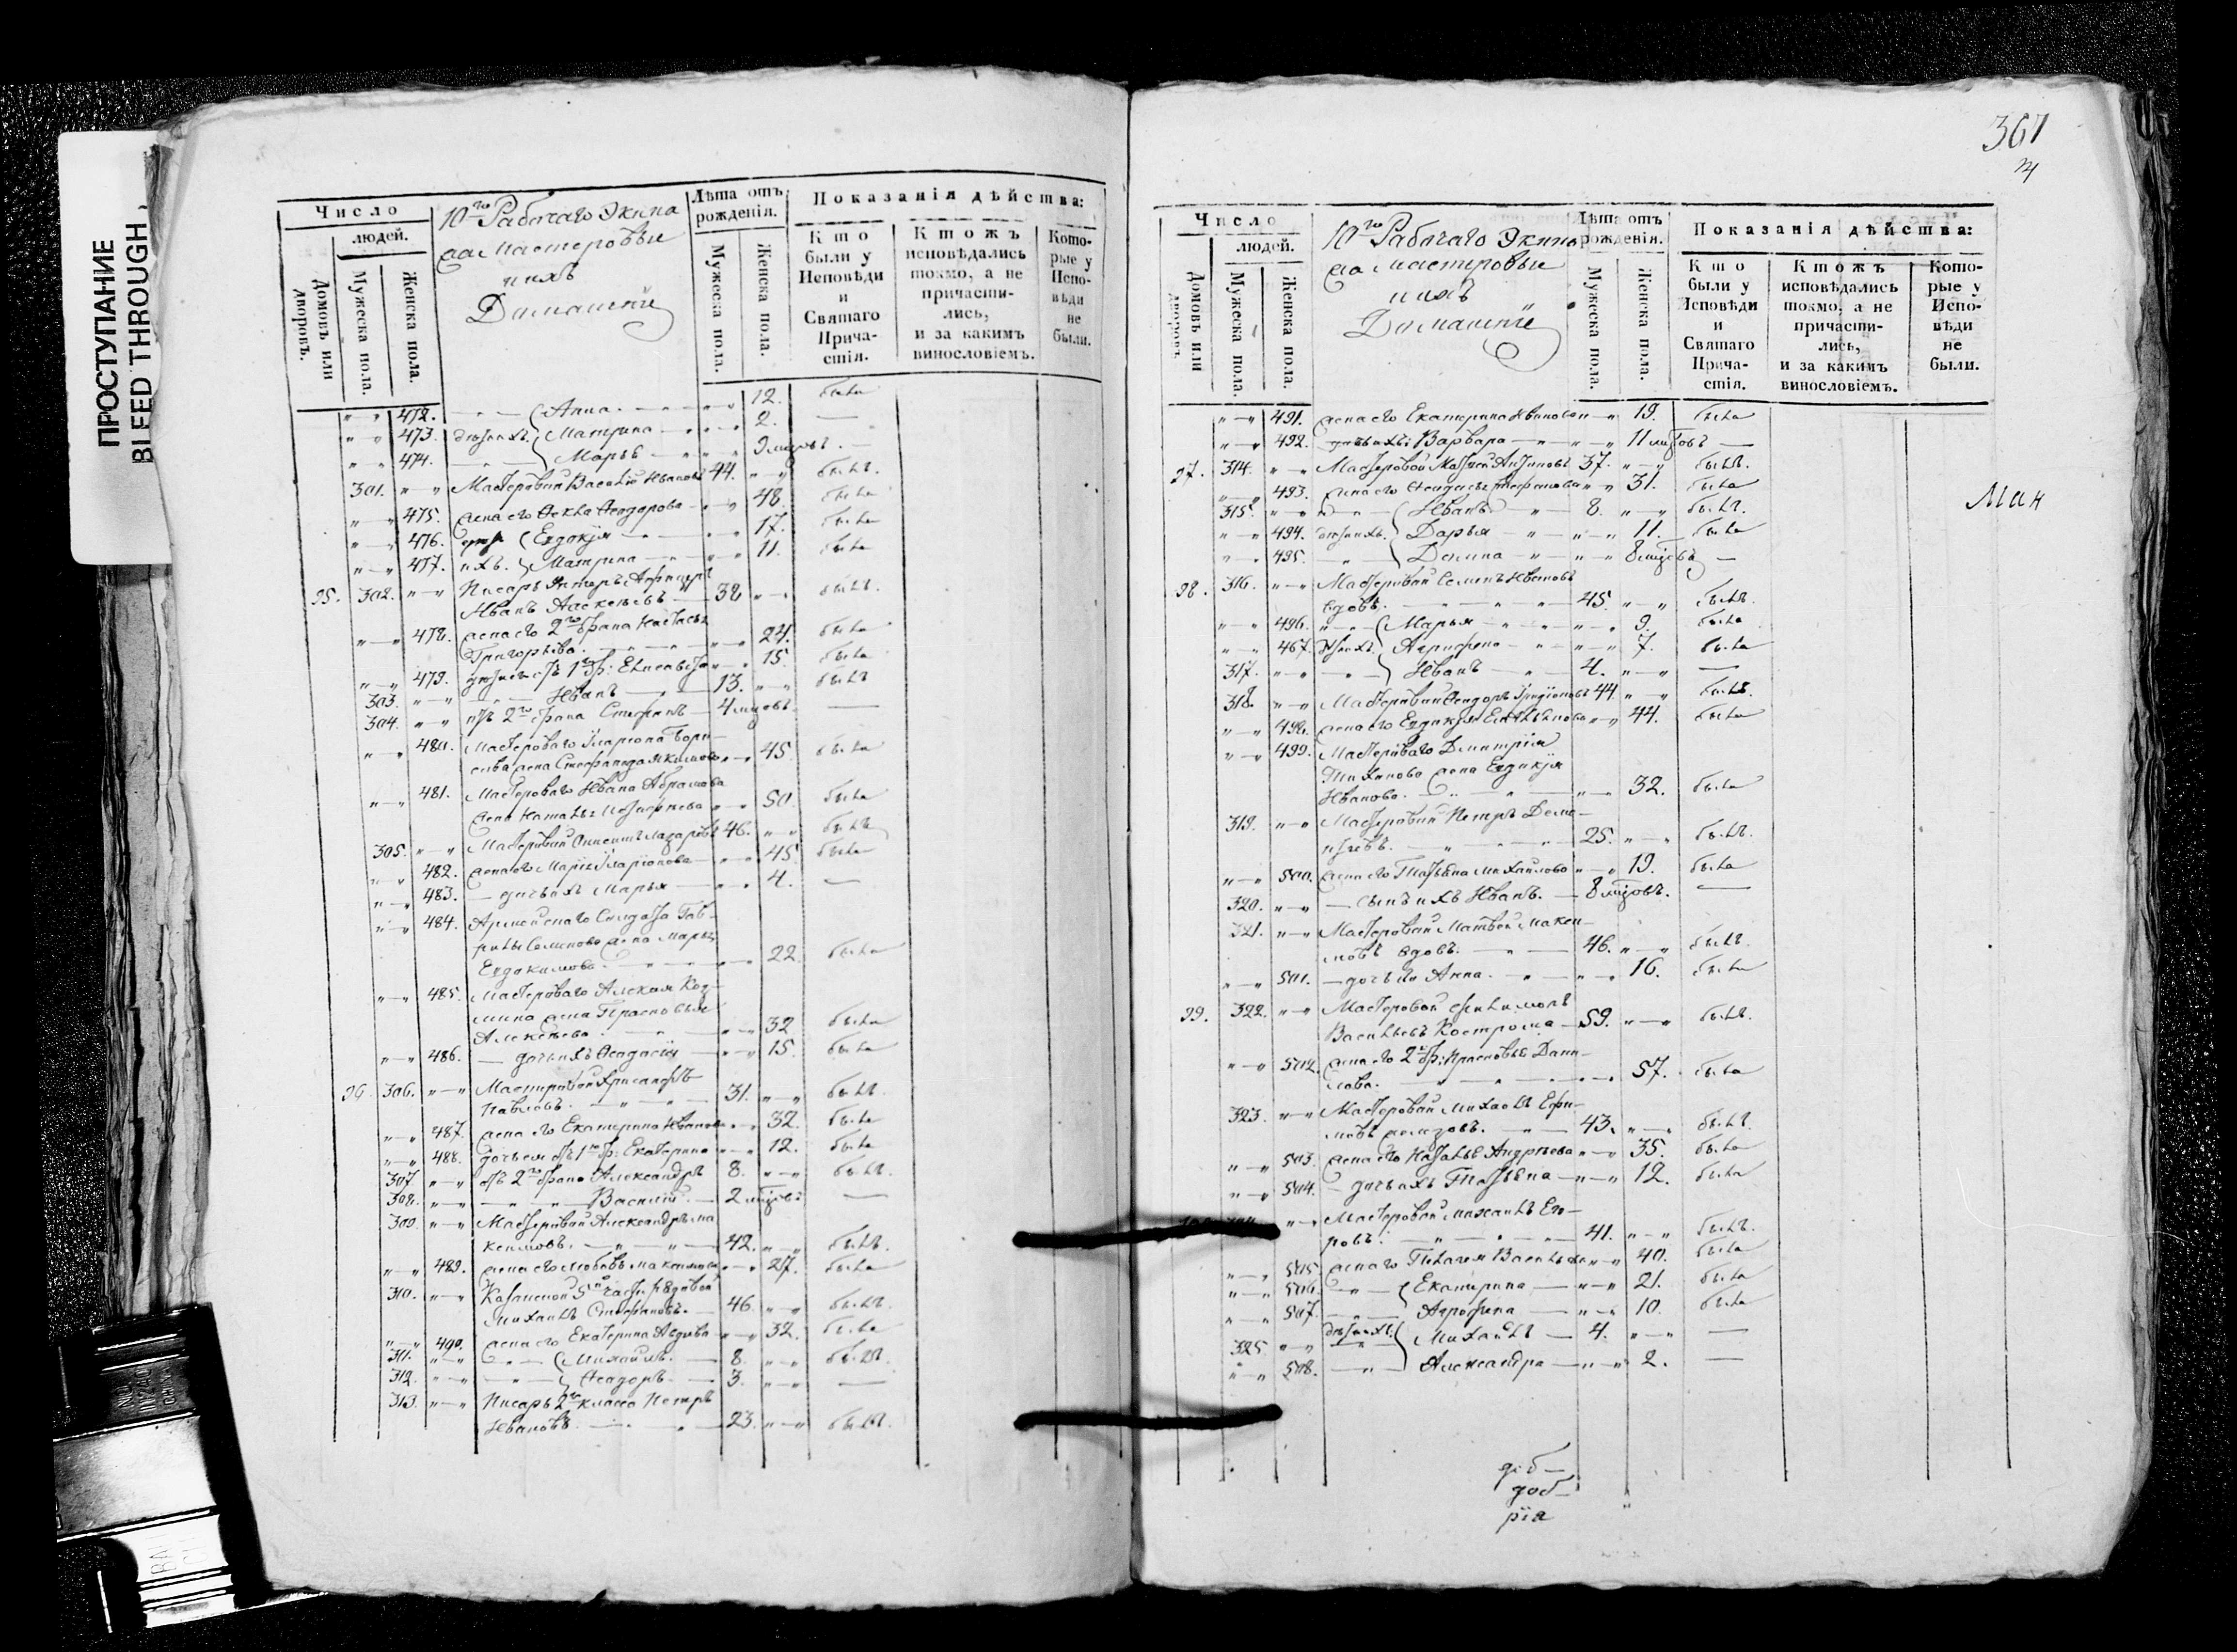 ПРОСТУПАНИЕ
BLEED THROUGH
Число
людей.
Домовъ или дворовъ.
Мужеска пола.
Женска пола.
10го Рабочаго Экипа
жа Мастеровые
и ихъ
Домашнiе
Лѣта отъ рожденiя.
Мужеска пола.
Женска пола.
Показанiя дѣйства:
Кто были у Исповѣди и Святаго Причастiя.
Ктожъ исповѣдались токмо, а не причастились, и за какимъ винословiемъ.
Которые у Исповѣди не были.
472. Анна 12. была
473. дѣти ихъ Матрина 2. —
474. Марья 9 мцовъ. —
301. Мастеровой Василiй Ивановъ 44. былъ.
475. жена его Fекла Fеодорова 48. была
476. Евдокiя 17. была
477. ихъ. Матрина 11. была
95. 302. Писарь Унтеръ Афицеръ
Иванъ Алексѣевъ 38 былъ.
478. жена его 2го брака Настасья
Григорьева. 24. была
479. 1го бр: Елисавета 15. была
303. Иванъ 13. былъ
304. отъ 2го брака Стефанъ 4 мцовъ. —
480. Мастероваго Иларiона Бори-
сова жена Стефанида Якимова 45 была
481. Мастероваго Ивана Абрамова
жена Наталья 50. была
305. Мастеровой Лазаревъ 46. былъ
482. жена его Марiя Иларiонова 45. была
483. дочь ихъ Марья 4. —
484. Армейскаго Солдата Гав-
рилы Семенова жена Марья
Евдокимова. 22. была
485. Мастероваго Алексея Коз-
мина жена Прасковья
Алексѣева. 32 была
486. дочь ихъ Fеодосiя 15. была
96 306. Мастеровой Хрисанфъ
Павловъ. 31. былъ.
487. жена его Екатерина Иванова 32. была
488. дочь отъ 1го бр: Екатерина 12. была
307 отъ 2го брака Александръ 8. былъ.
308. Василiй. 2 мцовъ —
309. Мастеровой Александръ Ма
ксимовъ. 42. былъ.
489. жена его Любовь Максимова 27. была
310. Казанской рядовой
Михаилъ Стефановъ. 46. былъ.
490. жена его Екатерина 32. была
311. Михаилъ. 8. былъ.
312. Fеодоръ 3. —
313. Писарь 2го класса Петръ
Ивановъ 23. былъ.
367
Число
людей.
Домовъ или дворовъ.
Мужеска пола
Женска пола.
10го Рабочаго Экипа
жа Мастеровые
и ихъ
Домашнiе
Лѣта отъ рожденiя.
Мужеска пола.
Женска пола.
Показанiя дѣйства:
Кто были у Исповѣди и Святаго Причастiя.
Ктожъ исповѣдались токмо, а не причастились, и за какимъ винословiемъ.
Которые у Исповѣди не были.
491. жена его Екатерина Иванова 19. была
492. дочь ихъ Варвара 11 мцовъ —
97. 314. Мастеровой Матвей Антиповъ 37. былъ.
493. жена его Стефанова 31. была
315. Иванъ 8. былъ.
494. дѣти ихъ. Дарья 11. была
495. Домна 8 мцовъ —
98. 316. Мастеровой Семенъ Ивановъ
вдовъ. 45. былъ.
496. Марья 9. была
467. дѣти ихъ Агрифена 7. была
317. Иванъ 4. —
318. Мастеровой Fеодоръ 44. былъ.
498. жена его Евдокiя Емельянова 44. была
499. Мастероваго Дмитрiя
Тихонова жена Евдокiя
Иванова. 32. была
319. Мастеровой Петръ Деме-
нтьевъ. 25. былъ.
500. жена его Татьяна Михайлова 19. была
320. сынъ ихъ Иванъ. 8 мцовъ. —
321. Мастеровой Матвей Макси-
мовъ вдовъ. 46. былъ.
501. дочь его Анна. 16. была
99. 322. Мастеровой Филимонъ
Васильевъ Кострома 59. былъ.
502. жена его 2го бр: Прасковья Дани-
лова. 57. была
323. Мастеровой Михаилъ Ефи-
мовъ 43. былъ.
503. жена его Наталья Андреева 35. была
504. дочь ихъ Татьяна 12. была
Мастеровой Михаилъ Его-
ровъ. 41. былъ.
505. жена его Пелагея Васильева 40. была
506. Екатерина 21. была
507. Агрофена 10. была
325. дѣти ихъ. Михаилъ 4. —
508. Александра 2. —